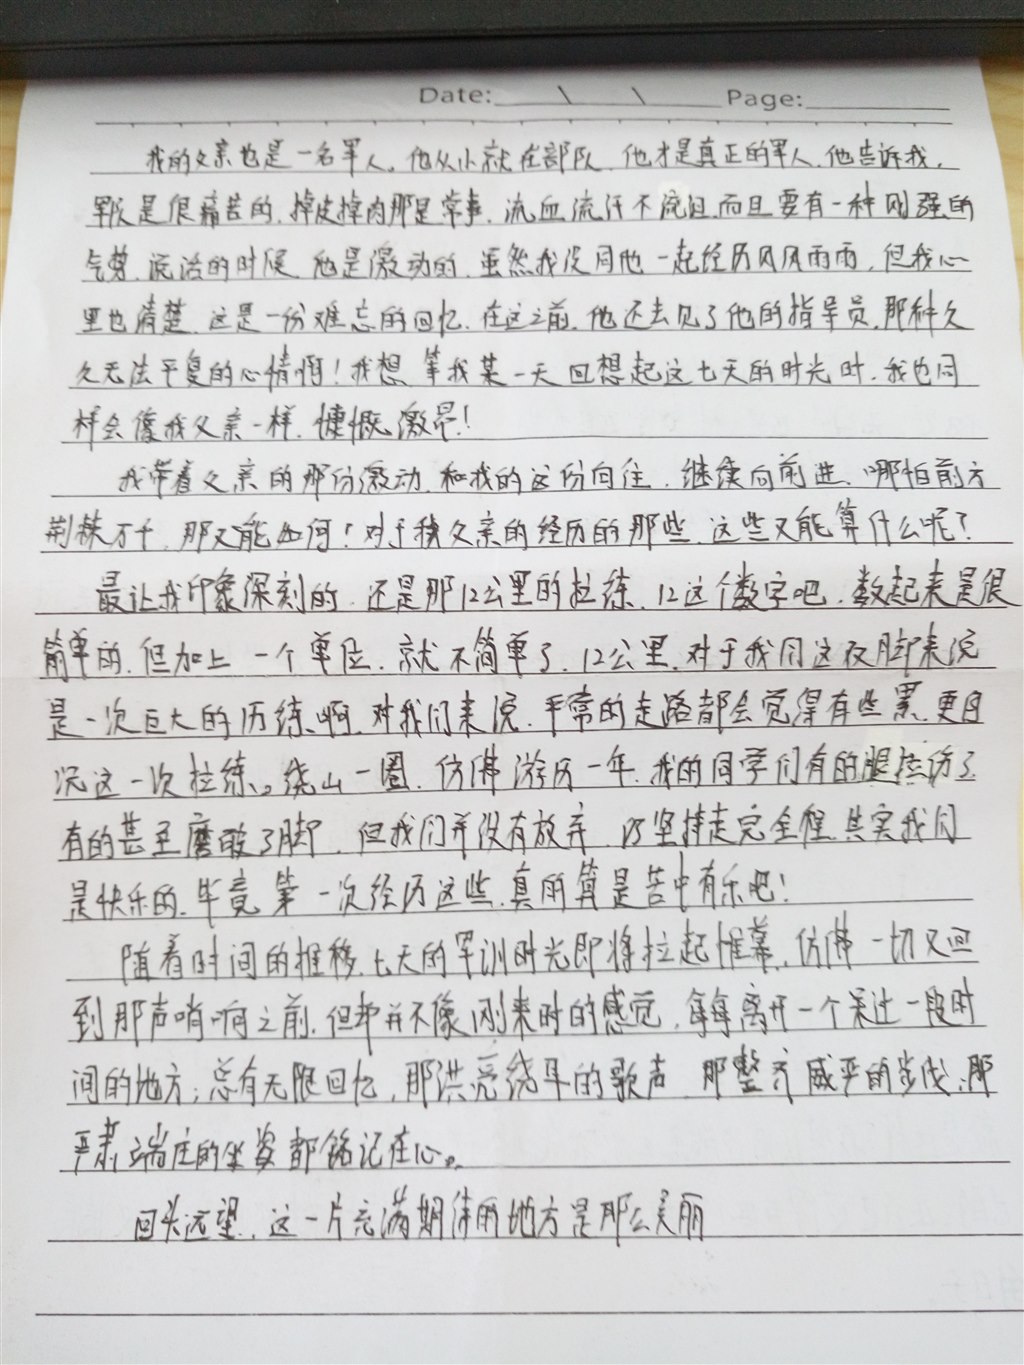 Date: \ \ Page:
我的父亲也是一名军人。他从小就在部队,他才是真正的军人,他告诉我,
军队是很痛苦的,掉皮掉肉那是常事,流血流汗不流泪,而且要有一种刚强的
气势,说话的时候,他是激动的,虽然我没同他一起经历风风雨雨,但我心
里也清楚,这是一份难忘的回忆,在这之前,他还去见了他的指导员,那种久
久无法平复的心情啊!我想,等我某一天回想起这七天的时光时,我也同
样会像我父亲一样,慷慨激昂!
我带着父亲的那份激动,和我的这份向往,继续向前进,哪怕前方
荆棘万千,那又能如何!对于我父亲的经历的那些,这些又能算什么呢?
最让我印象深刻的,还是那12公里的拉练,12这个数字吧,数起来是很
简单的,但加上一个单位,就不简单了,12公里,对于我们这双脚来说
是一次巨大的历练啊,对我们来说,平常的走路都会觉得有些累,更且
况这一次拉练。绕山一圈,仿佛游历一年,我的同学们有的腿拉伤了
有的甚至磨破了脚,但我们并没有放弃,以坚持走完全程,其实我们
是快乐的,毕竟第一次经历这些,真的算是苦中有乐吧!
随着时间的推移,七天的军训时光即将拉起帷幕,仿佛一切又回
到那声哨响之前,但却并不像刚来时的感觉,每每离开一个呆过一段时
间的地方,总有无限回忆,那洪亮绕耳的歌声,那整齐威严的步伐,那
严肃端庄的坐姿都铭记在心。
回头远望,这一片充满期待的地方是那么美丽